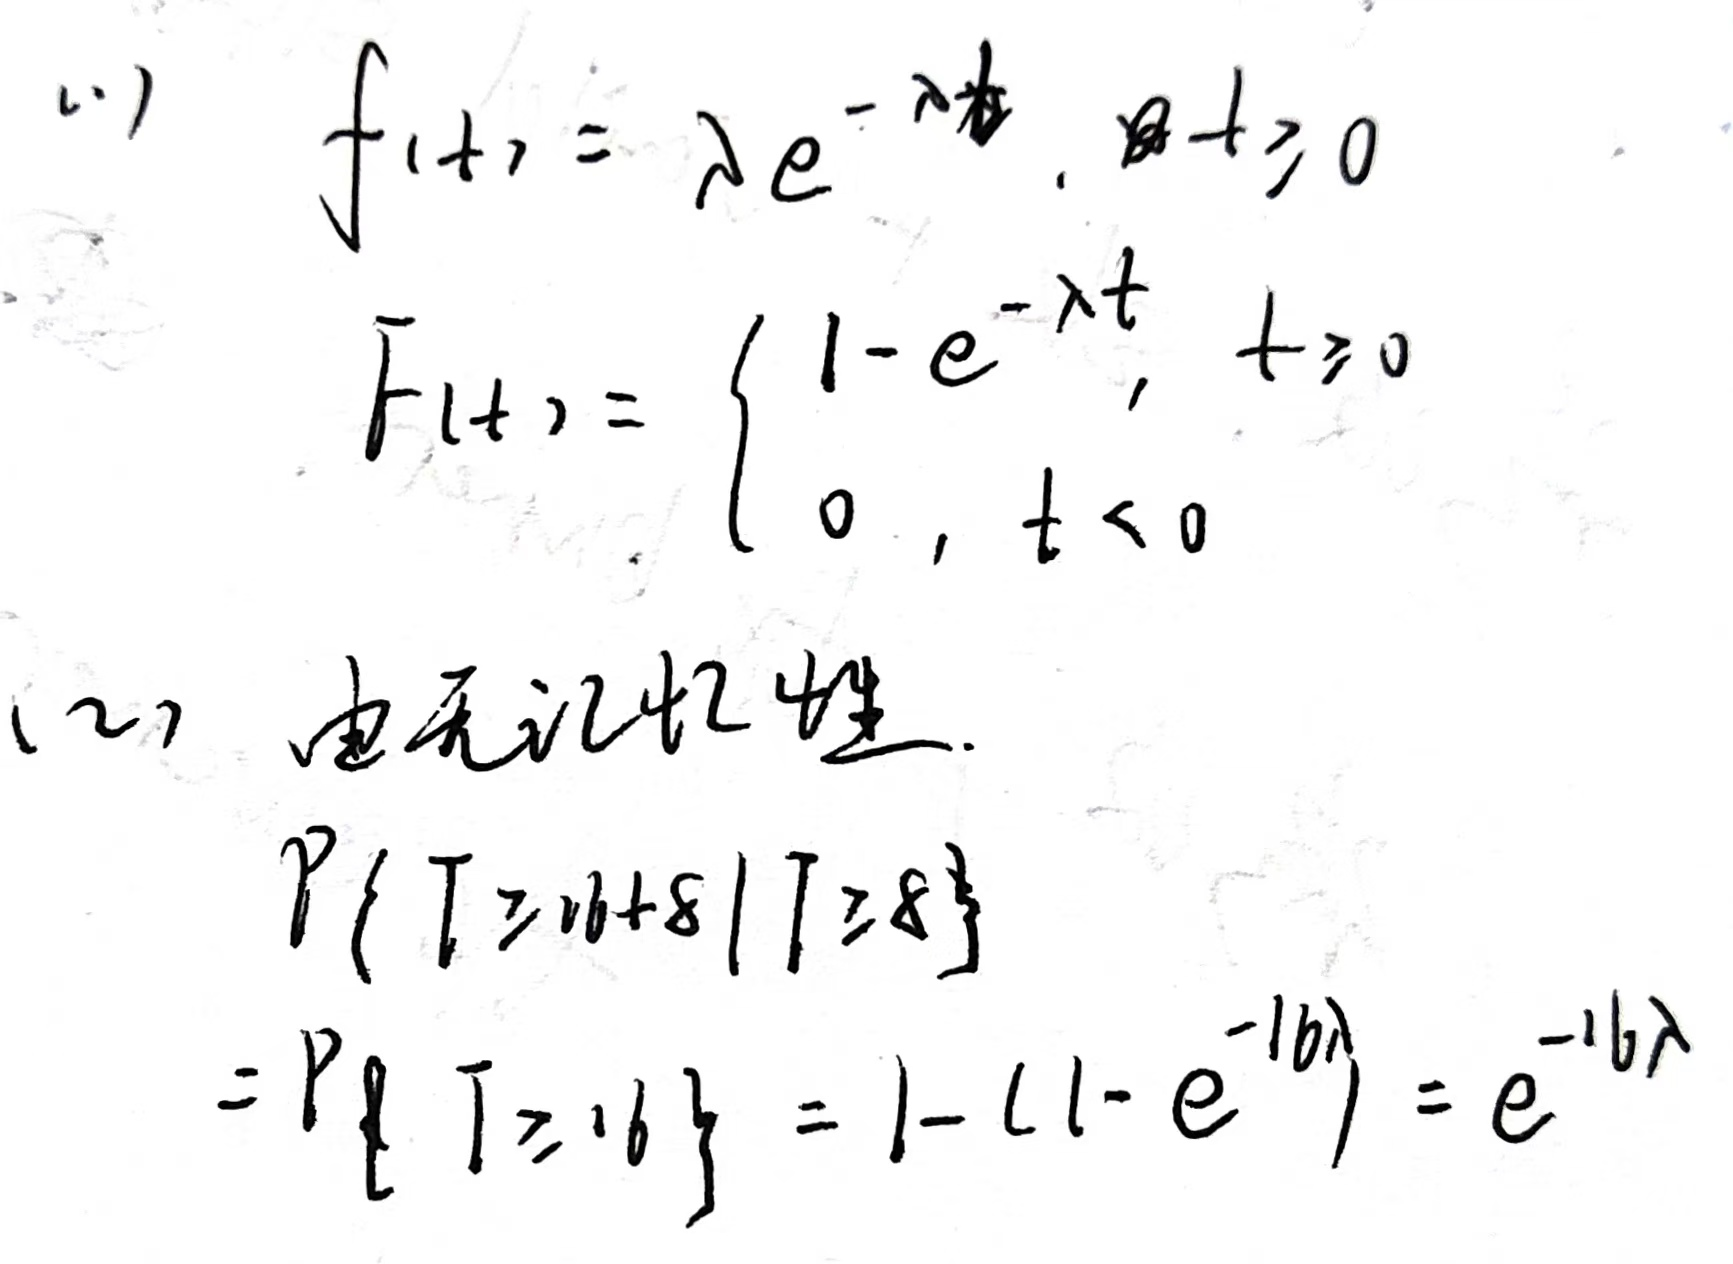 (1) f(t) = λe^{-λt}, t ≥ 0
F(t) = { 1 - e^{-λt}, t ≥ 0
0, t < 0
(2) 由无记忆性.
P{T ≥ 16+8 | T ≥ 8}
= P{T ≥ 16} = 1 - (1 - e^{-16λ}) = e^{-16λ}